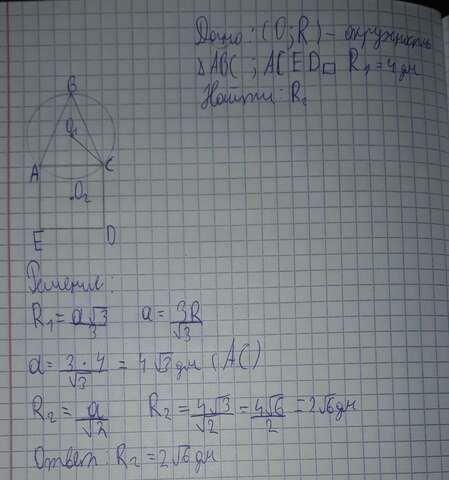 Дано: (O;R) - окружность
ΔABC; ACED□ R₁=4дм
Найти: R₂
B
O₁
A C
O₂
E D
Решение:
R₁ = a√3/3 a = 3R/√3
a = 3·4/√3 = 4√3 дм (AC)
R₂ = a/√2 R₂ = 4√3/√2 = 4√6/2 = 2√6 дм
Ответ: R₂ = 2√6 дм